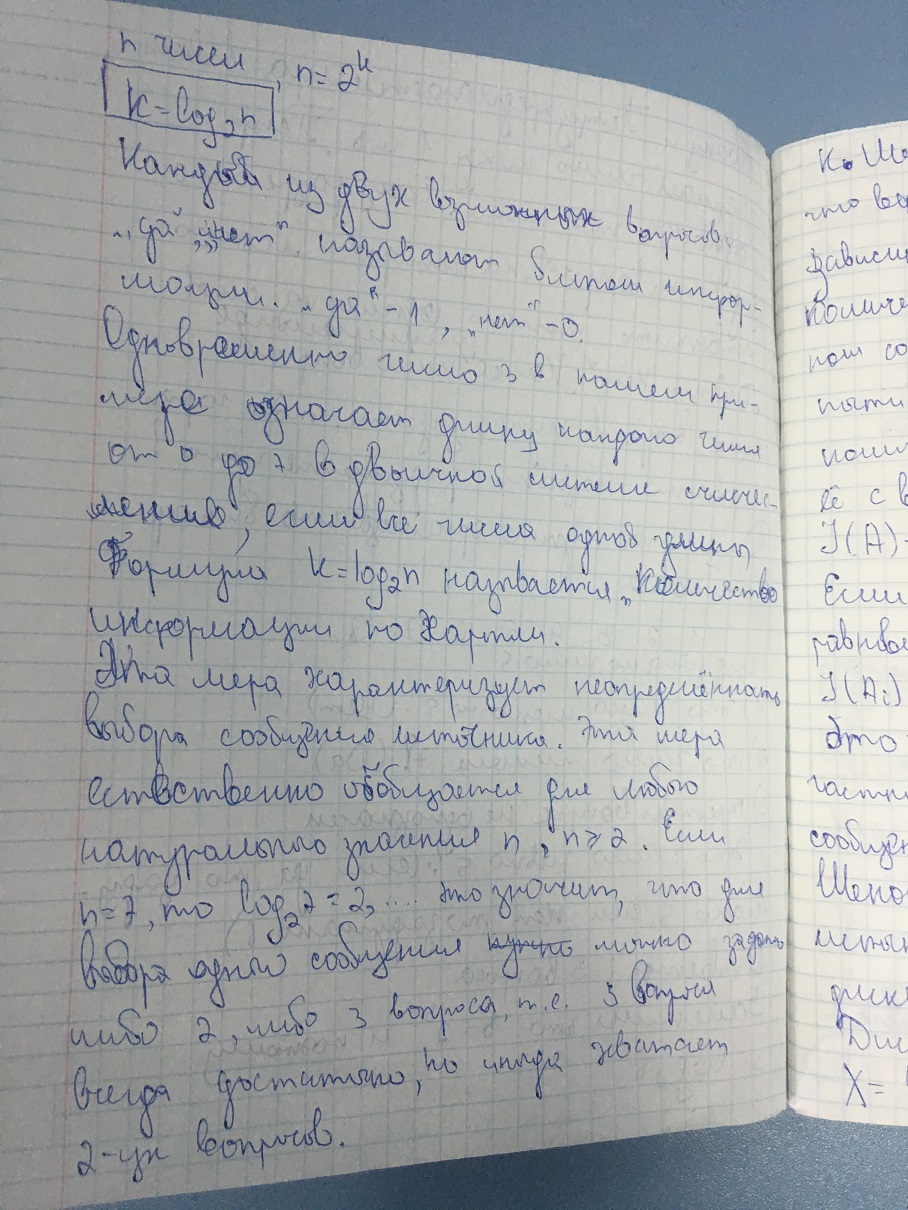 n чисел , n = 2^k
K = log₂n
Каждый из двух возможных вопросов
„да" „нет" называют битом инфор-
мации. „да" - 1, „нет" - 0.
Одновременно число 3 в нашем при-
мере означает длину каждого числа
от 0 до 7 в двоичной системе
если все числа одной длины
Формула K = log₂n назвается „Количество
информации по Хартли.
Эта мера характеризует неопределённость
выбора сообщения источника. Эта мера
ествственно обобщается для любого
натурального значения n, n ≥ 2. Если
n = 7, то log₂7 = 2, .... Это значит, что для
выбора одного сообщения нужно можно задать
либо 2, либо 3 вопроса, т.е. 3 вопроса
всегда достаточно, но иногда хватает
2-ух вопросов.
K. Ше
что вер
зависи
количе
ном со
её с в
I(A)
Если
равнове
I(Ai)
Это
частн
сообщен
Шено
диск
Дис
X =